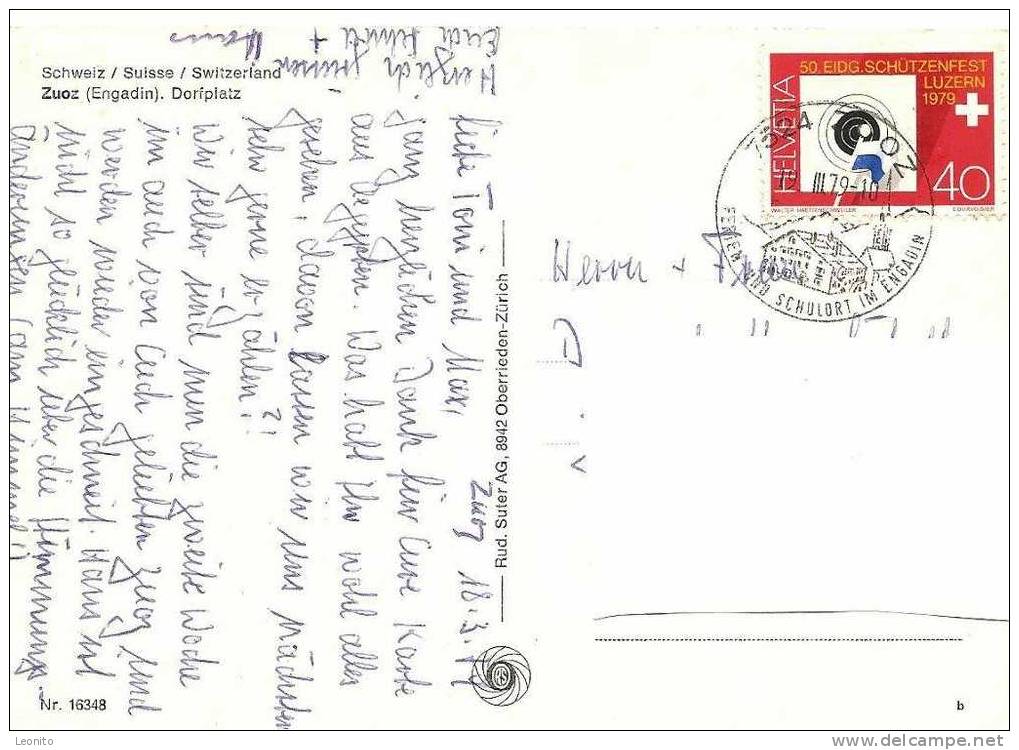 Schweiz / Suisse / Switzerland
Zuoz (Engadin). Dorfplatz
Zuoz 18.3.79
Liebe Toni und Max,
ganz herzlichen Dank für Eure Karte
aus Aegypten. Was habt Ihr wohl alles
gesehen, davon lassen wir uns nächstens
sehr gerne erzählen?!
Wir selber sind nun die zweite Woche
im auch von Euch geliebten Zuoz und
werden wieder eingeschneit. Hans ist
nicht so glücklich über die Stimmungs-
änderungen (am Himmel!)
Herzlich grüssen
Euch +
Hans
Rud. Suter AG, 8942 Oberrieden-Zürich
RS
Nr. 16348
b
50. EIDG. SCHÜTZENFEST
LUZERN
1979
HELVETIA
40
COURVOISIER
7524 ZUOZ
III.79-10
FERIEN UND SCHULORT IM ENGADIN
Herrn + Frau
D
Leonito
delcampe.net